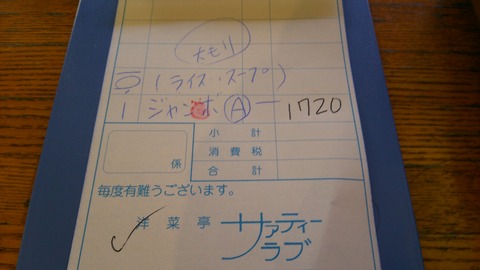 大モリ
(ライス、スープ)
1 ジャンボ Ⓐ ー 1720
小計
消費税
合計
係
毎度有難うございます。
洋菜亭 サァティーラブ